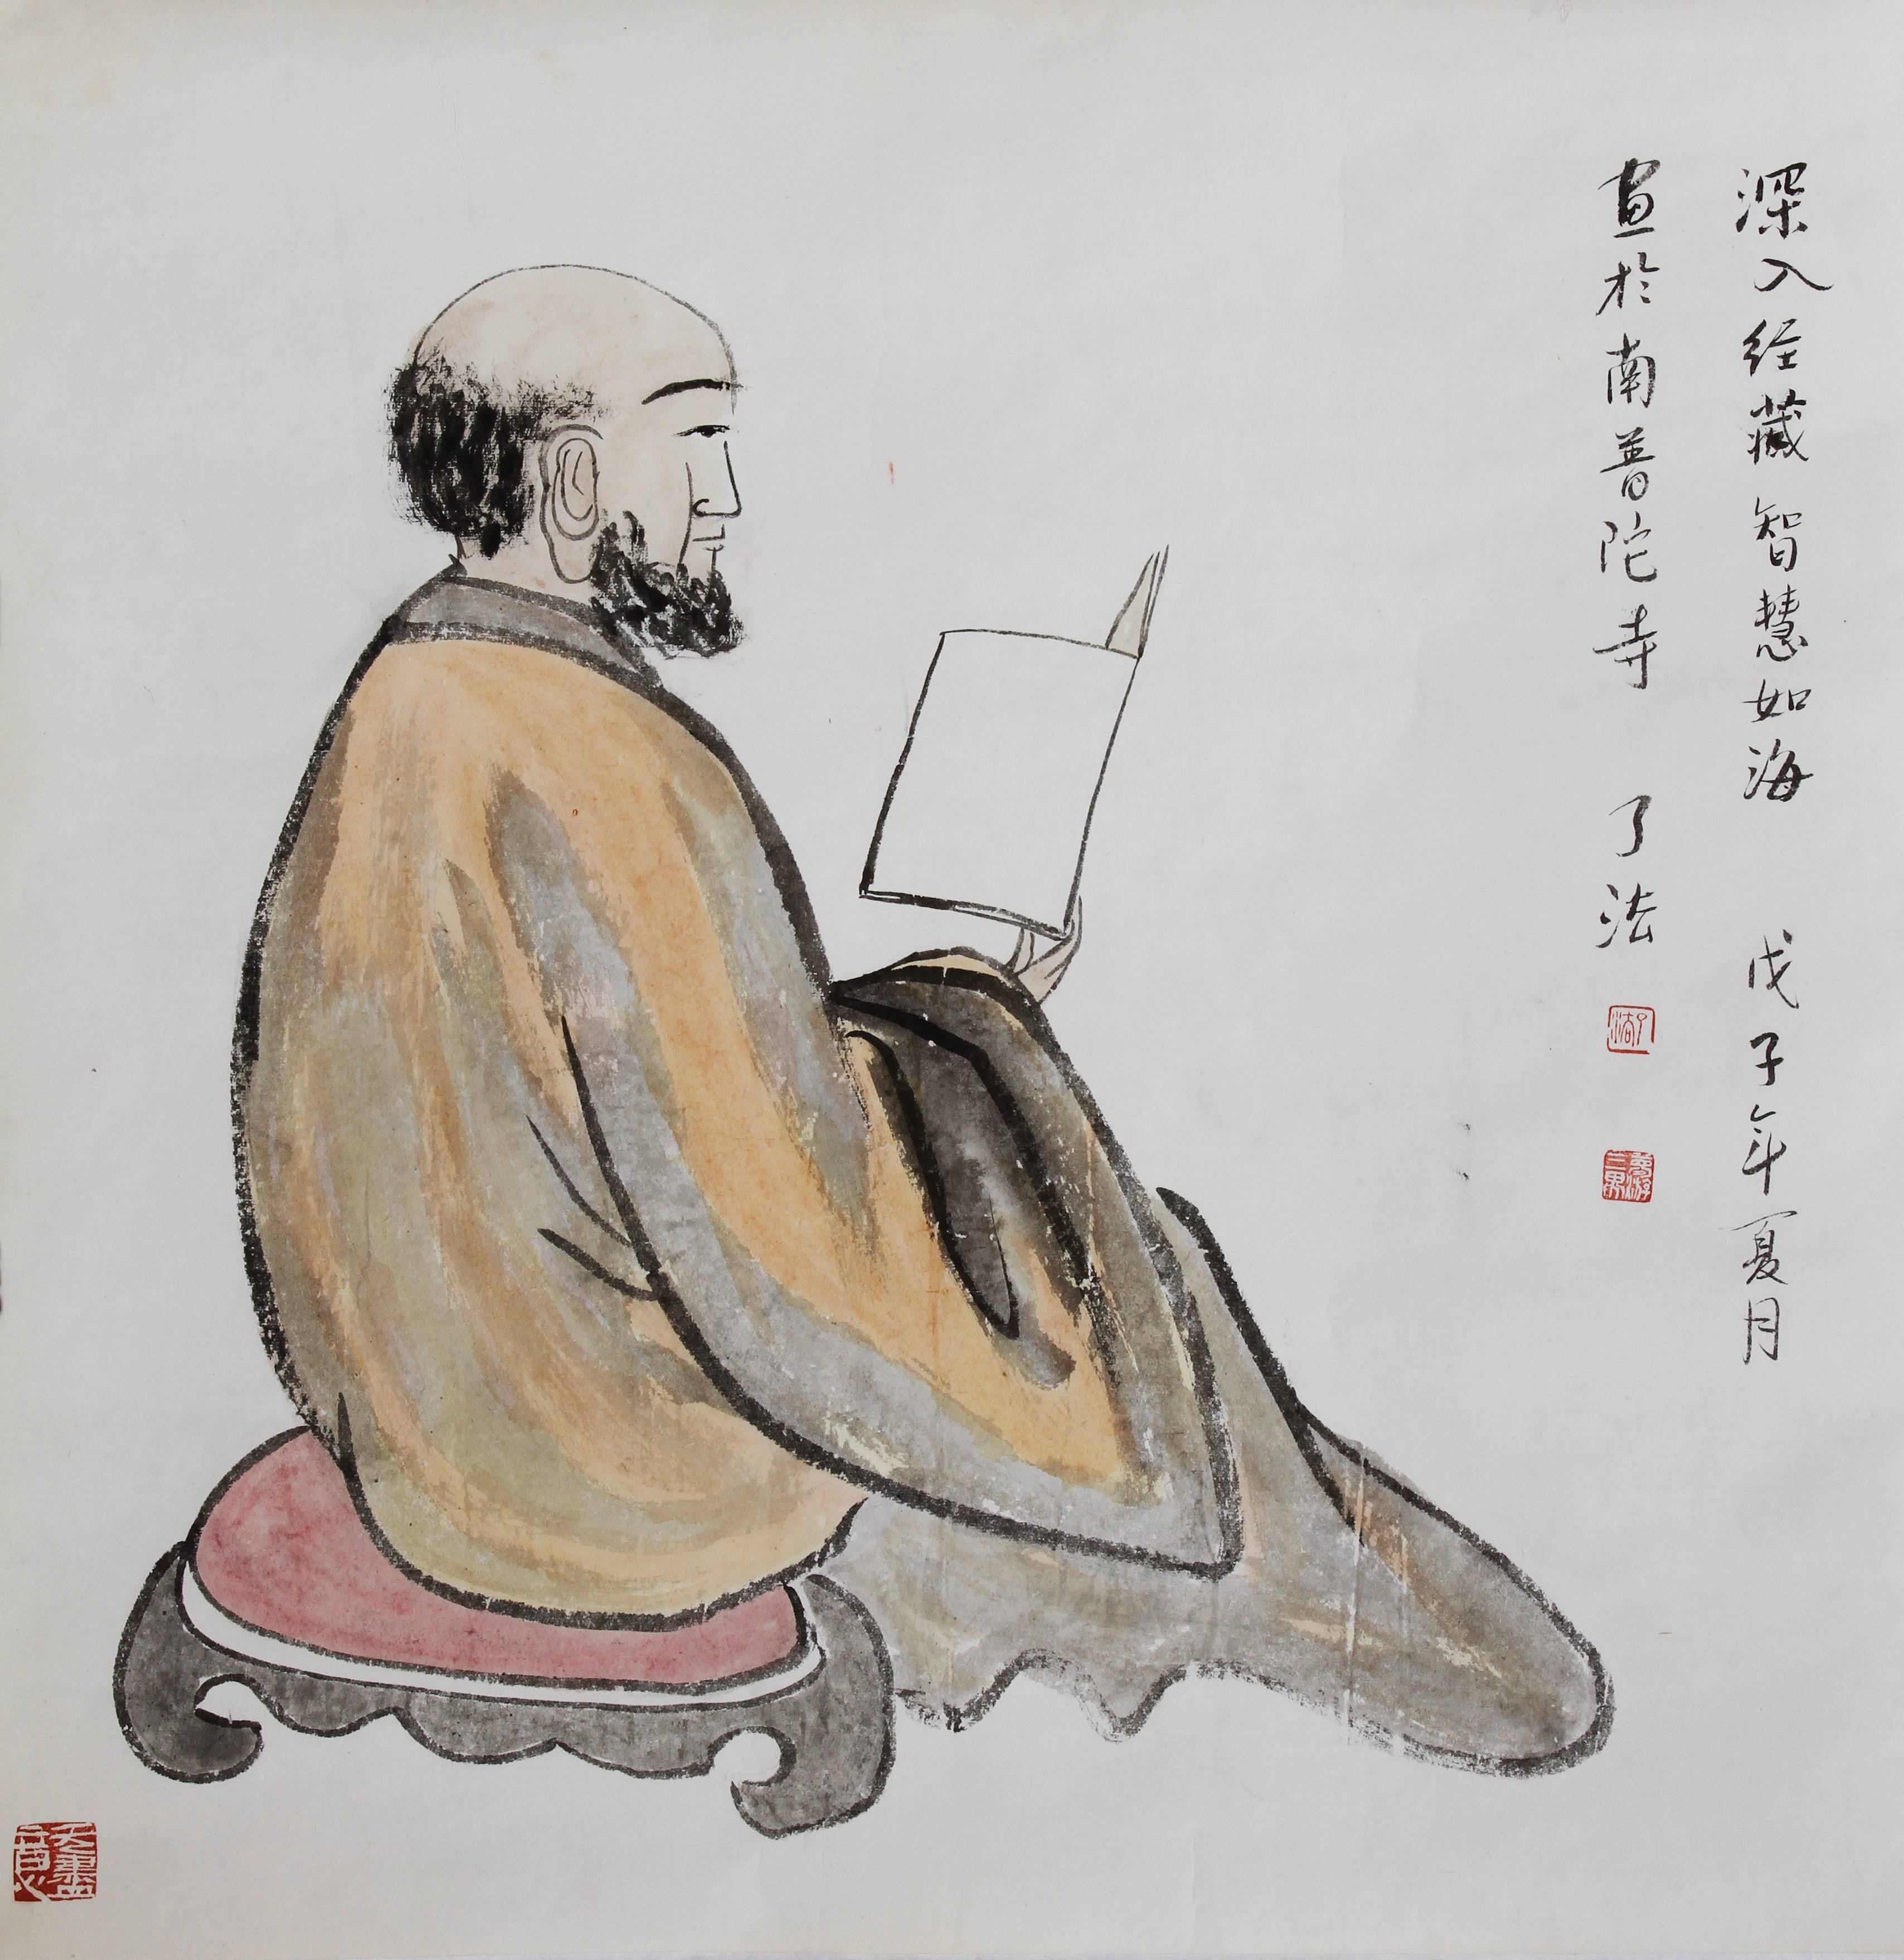 深入经藏智慧如海 戊子年夏月
画於南普陀寺 了法
了法